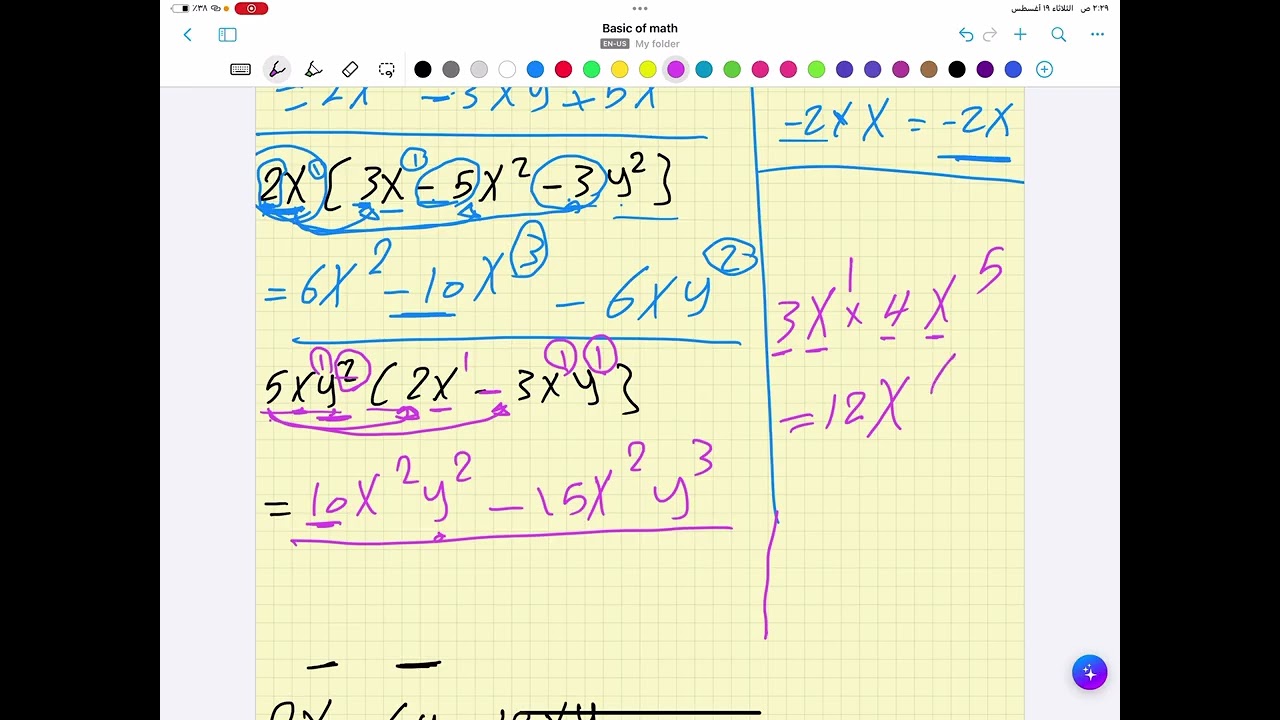 ٪٣٨
٢:٢٩ ص الثلاثاء ١٩ أغسطس
Basic of math
EN-US My folder
= 2x - 3xy + 5x
2x¹ [ 3x¹ - 5x² - 3y² ]
= 6x² - 10x³ - 6xy²
5x¹y² ( 2x¹ - 3x¹y¹ }
= 10x²y² - 15x²y³
-2 × x = -2x
3x¹ × 4x⁵
= 12x